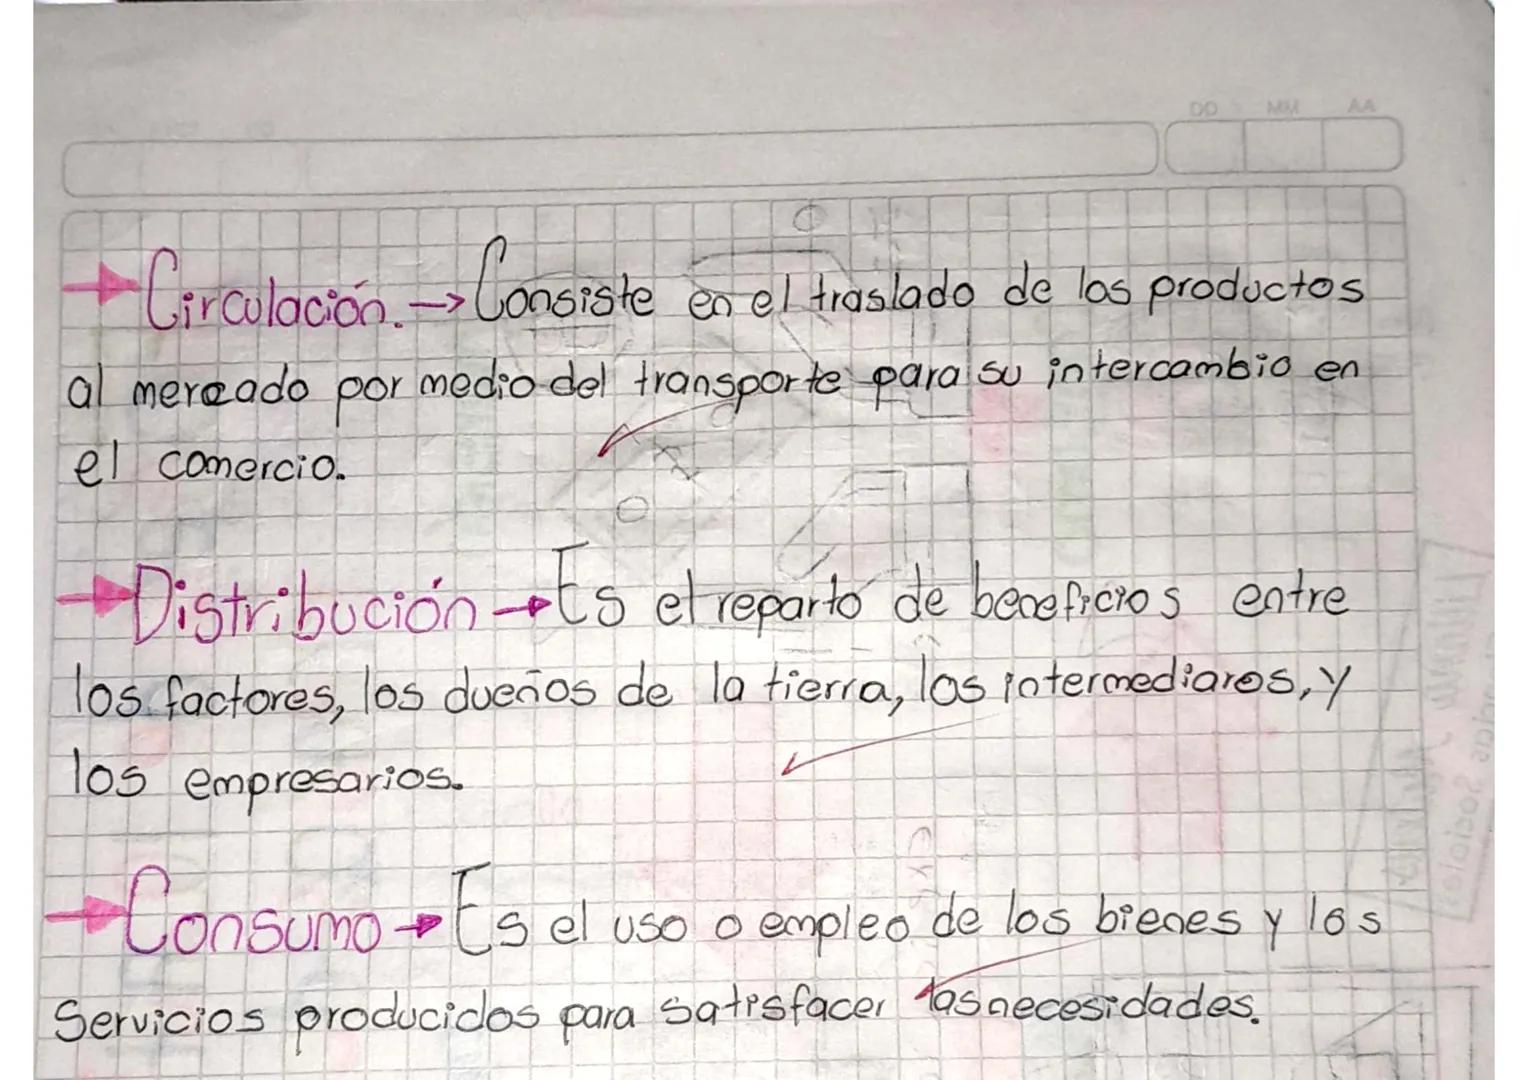 DD MM AA
→Circulación.→Consiste en el traslado de los productos
al mercado por medio del transporte para su intercambio en
el comercio.
→Distribución→Es el reparto de beneficios entre
los factores, los dueños de la tierra, los intermediaros, y
los empresarios.
→Consumo→Es el uso o empleo de los bienes y los
Servicios producidos para satisfacer las necesidades.